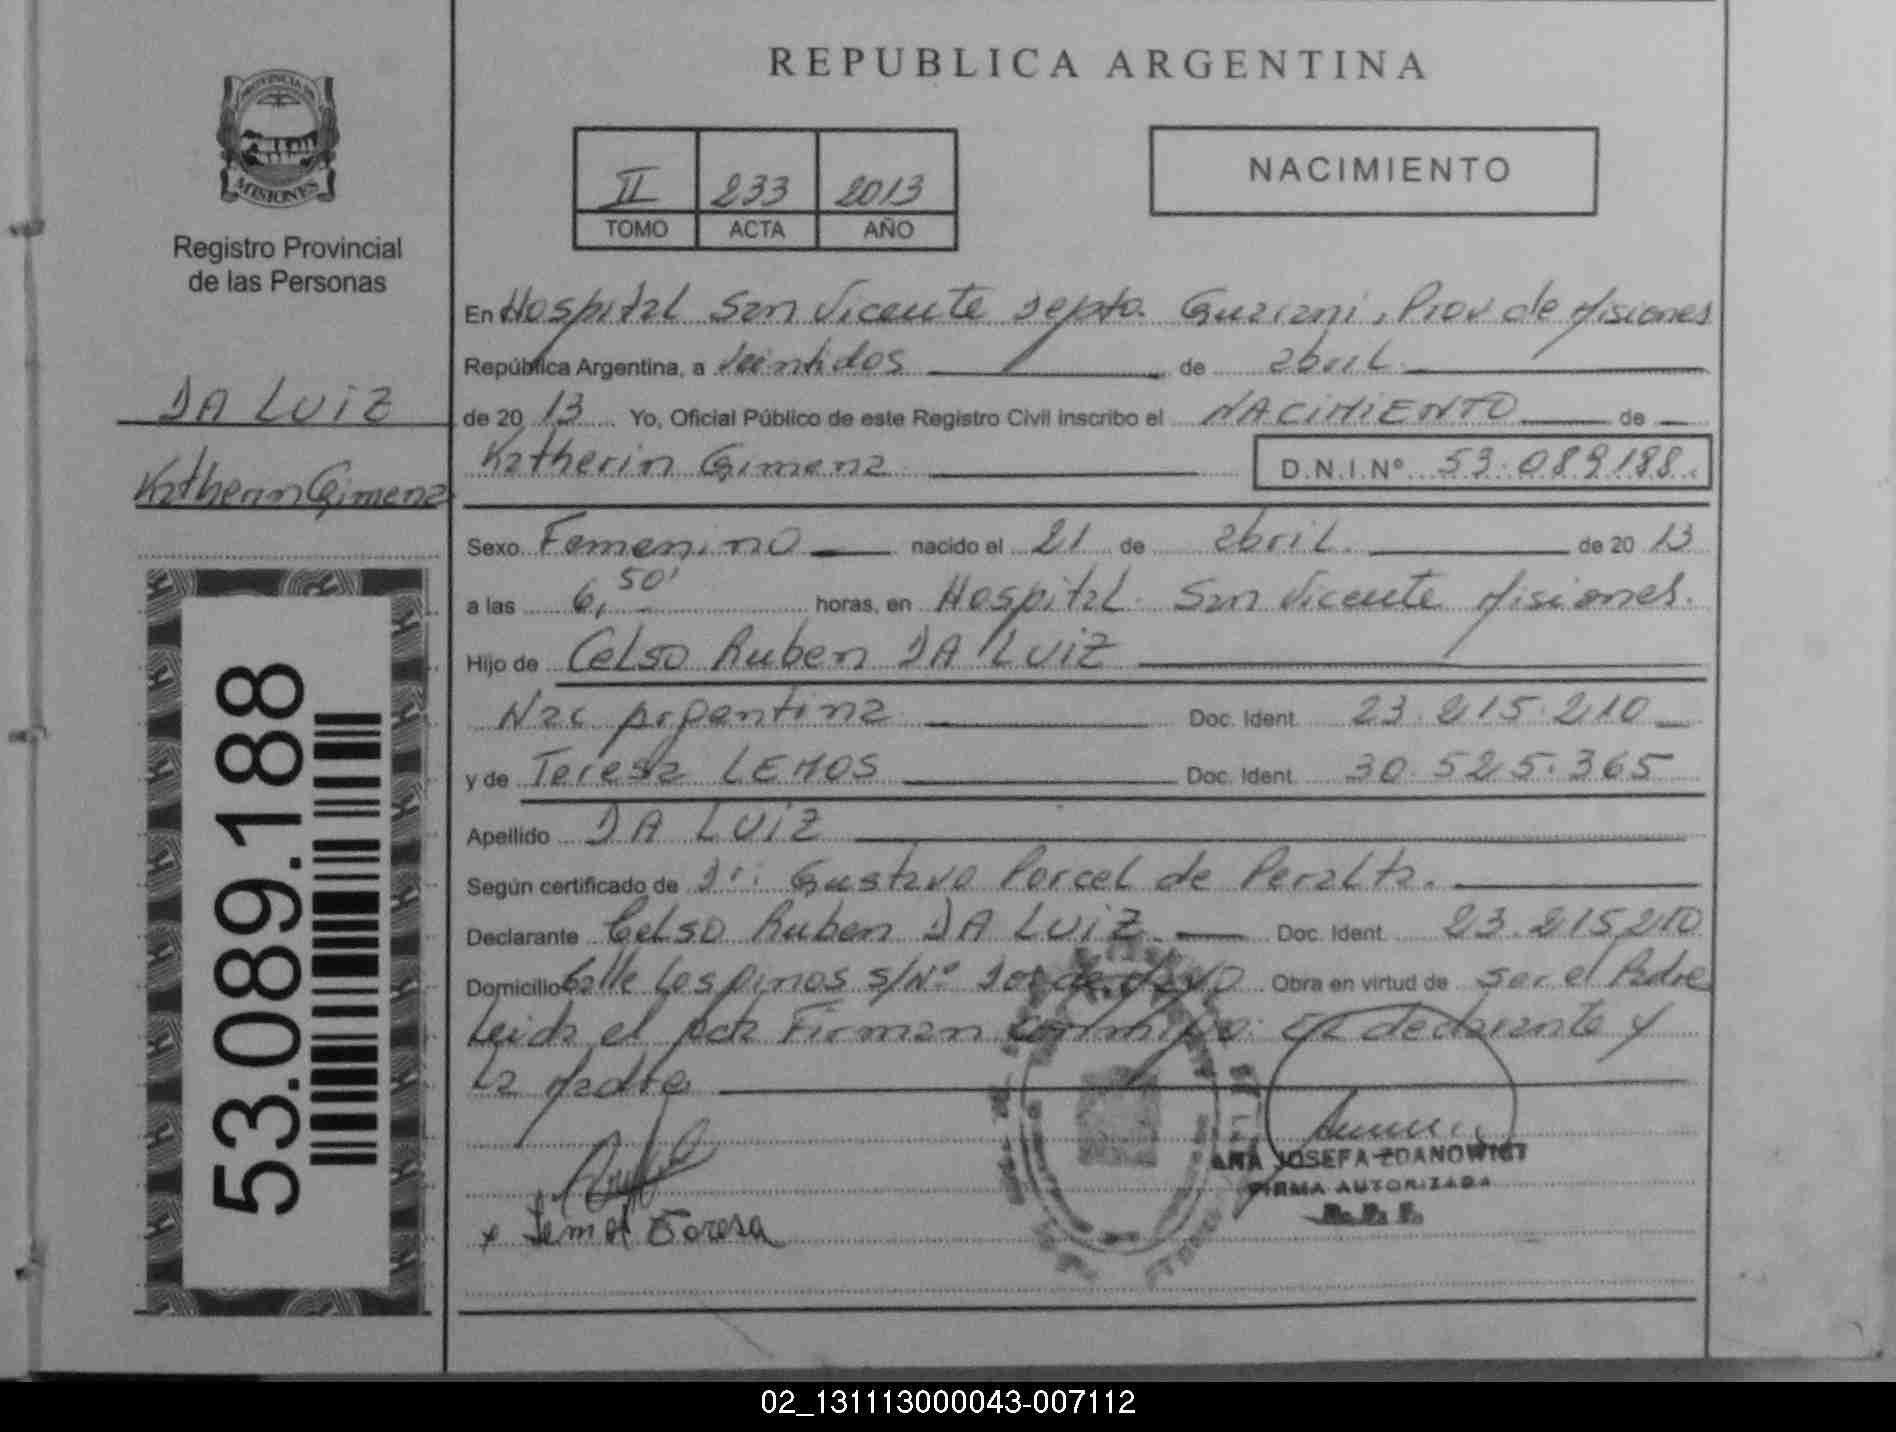 REPUBLICA ARGENTINA
PROVINCIA DE
MISIONES
Registro Provincial
de las Personas
II 233 2013
TOMO ACTA AÑO
NACIMIENTO
DA LUIZ
Katherin Gimena
53.089.188
En Hospital San Vicente Depto. Guarani, Prov de Misiones
República Argentina, a veintidos de abril.
de 20 13 Yo, Oficial Público de este Registro Civil inscribo el NACIMIENTO de
Katherin Gimena D.N.I.Nº 53.089.188.
Sexo Femenino nacido el 21 de abril. de 20 13
a las 6,50' horas, en Hospital San Vicente Misiones.
Hijo de Celso Ruben DA LUIZ
Nac Argentina Doc. Ident. 23.215.210
y de Teresa LEMOS Doc. Ident. 30.525.365
Apellido DA LUIZ
Según certificado de Dr: Gustavo Porcel de Peralta.
Declarante Celso Ruben DA LUIZ Doc. Ident. 23.215210
Domicilio Calle Los pinos s/Nº Dos de Mayo Obra en virtud de ser el Padre
Leida el acta Firman conmigo: El declarante y
La Madre
x Lemos Teresa
ANA JOSEFA ZDANOWICZ
FIRMA AUTORIZADA
R. P. P.
02_131113000043-007112